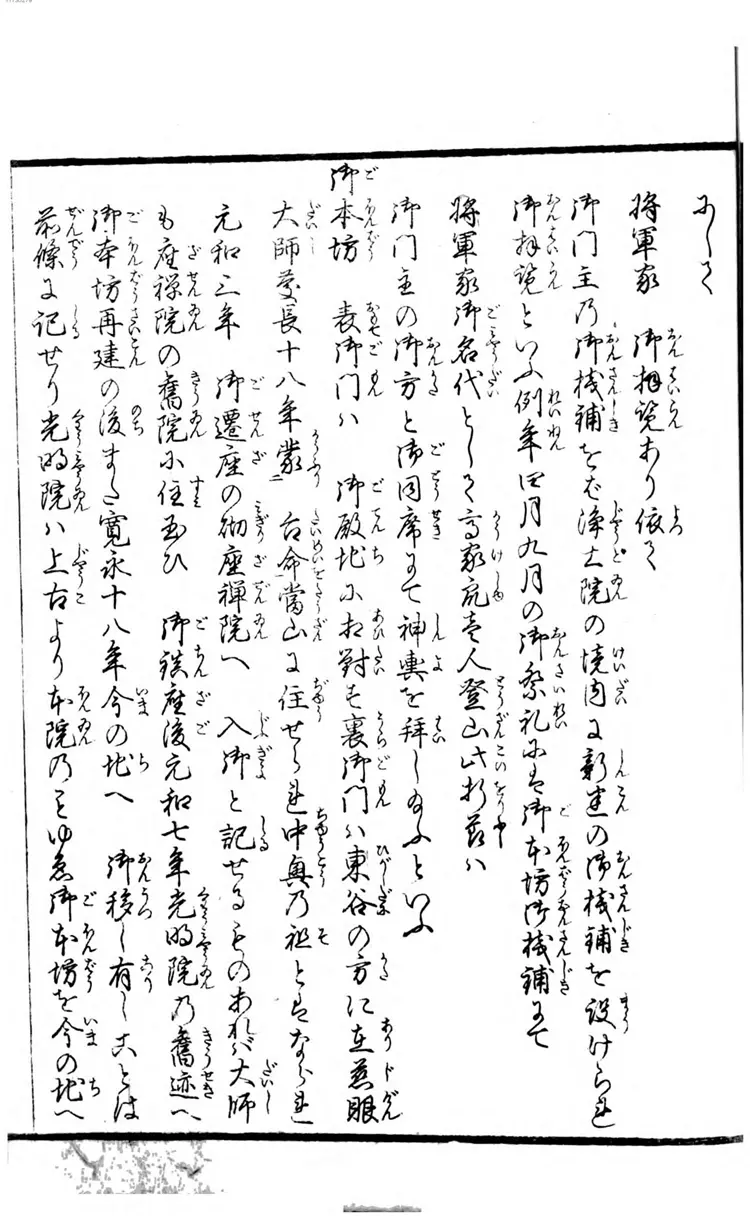 にして
将軍家　御拝覧あり依て
御門主乃御桟鋪をば浄土院の境内に新建の御桟鋪を設けられ
御拝覧といふ例年四月九月の御祭礼には御本坊御桟鋪にて
将軍家御名代として高家衆壱人登山此折節ハ
御門主の御方と御同席にて神輿を拝し給ふといふ
御本坊　表御門ハ　御殿地に相対す裏御門ハ東谷の方に在慈眼
大師慶長十八年蒙　台命当山に住せられ中興乃祖とはなられ
元和三年　御遷座の砌座禅院へ　入御と記せるものあれバ大師
も座禅院の旧院に住玉ひ　御鎮座後元和七年光明院乃旧迹へ
御本坊再建の後また寛永十八年今の地へ　御移し有しことは
前條に記せり光明院ハ上古より本院乃こゆゑ御本坊を今の地へ